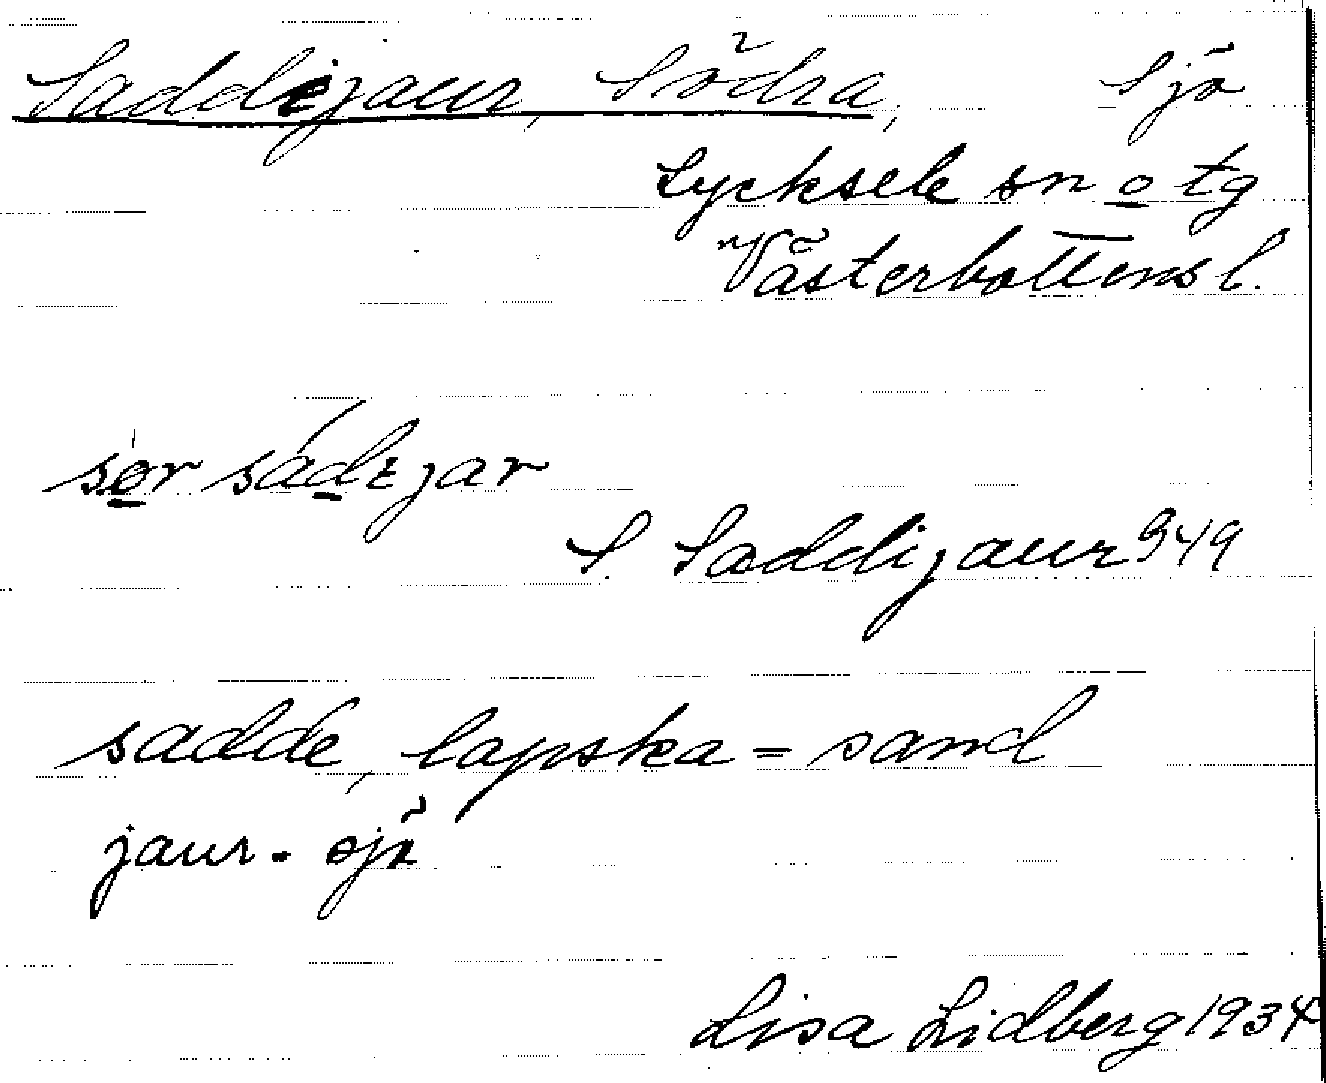 Saddejaur, Södra, Sjö
Lycksele sn o tg
Västerbottens l.
sør sádɛjar
S. Saddijaur 949
sadde, lapska = sand
jaur - sjö
Lisa Lidberg 1934